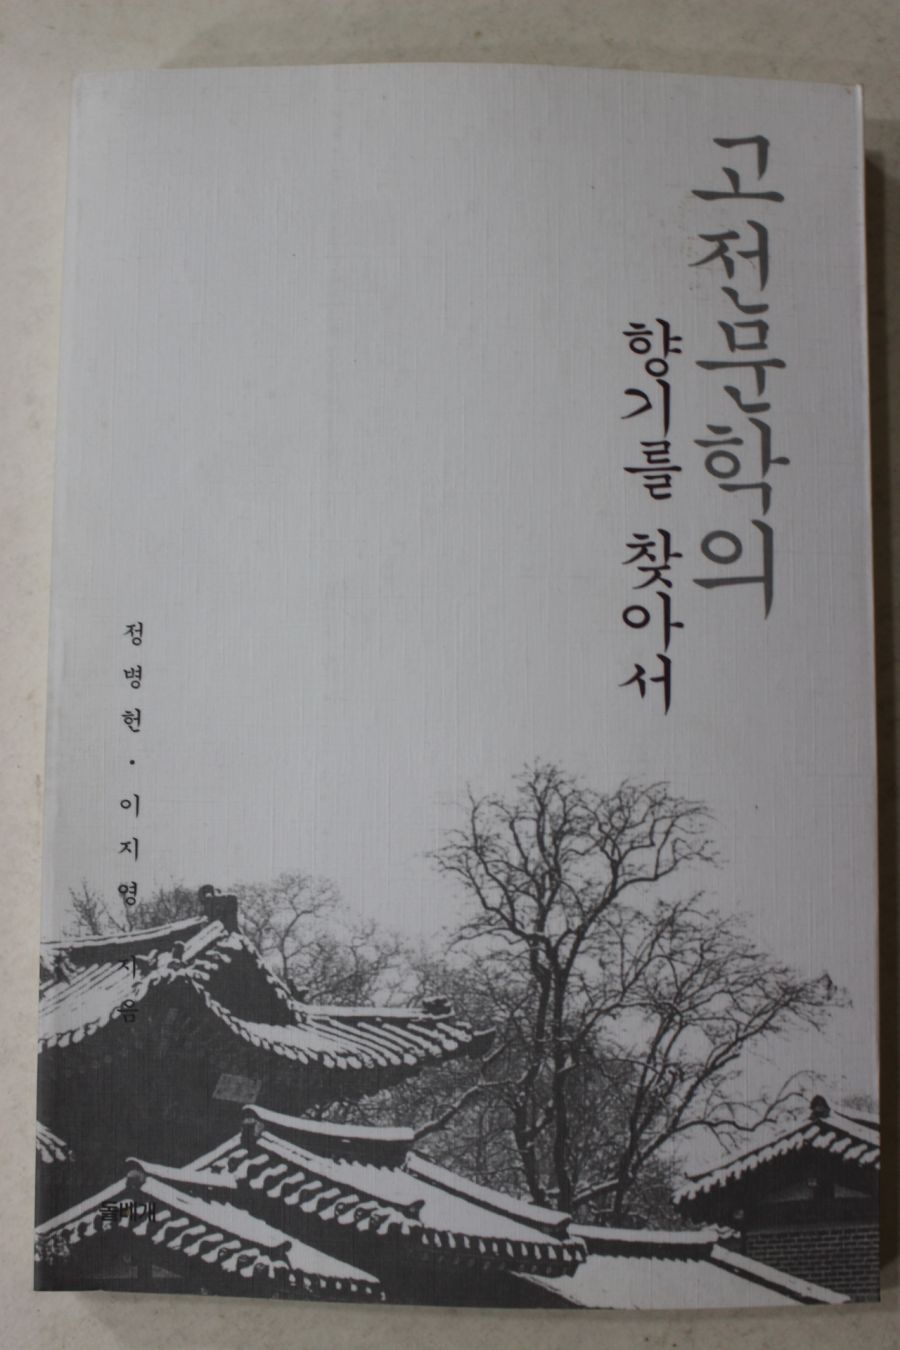 고전문학의
향기를 찾아서
정병헌·이지영 지음
돌베개